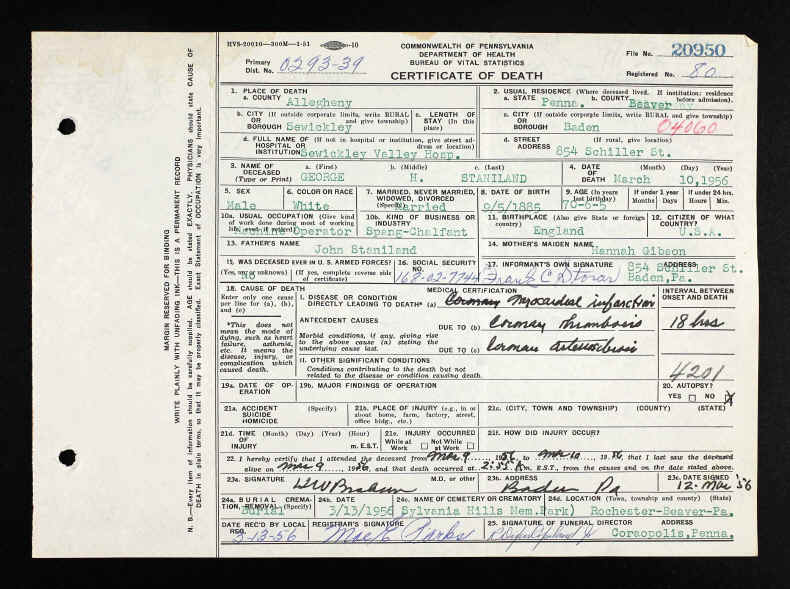 HVS-20010-300M-2-51 10
COMMONWEALTH OF PENNSYLVANIA
DEPARTMENT OF HEALTH
BUREAU OF VITAL STATISTICS
File No. 20950
Primary Dist. No. 0293-39
CERTIFICATE OF DEATH
Registered No. 80
1. PLACE OF DEATH
a. COUNTY Allegheny
2. USUAL RESIDENCE (Where deceased lived. If institution: residence before admission).
a. STATE Penna. b. COUNTY Beaver
b. CITY (If outside corporate limits, write RURAL and give township) OR BOROUGH Sewickley
c. LENGTH OF STAY (In this place)
c. CITY (If outside corporate limits, write RURAL and give township) OR BOROUGH Baden 04060
d. FULL NAME OF (If not in hospital or institution, give street address or location) HOSPITAL OR INSTITUTION Sewickley Valley Hosp.
d. STREET ADDRESS (If rural, give location) 854 Schiller St.
3. NAME OF DECEASED (Type or Print) a. (First) GEORGE b. (Middle) H. c. (Last) STANILAND
4. DATE OF DEATH (Month) (Day) (Year) March 10,1956
5. SEX Male
6. COLOR OR RACE White
7. MARRIED, NEVER MARRIED, WIDOWED, DIVORCED (Specify) Married
8. DATE OF BIRTH 9/5/1885
9. AGE (In years last birthday) 70-6-5
If under 1 year Months Days
If under 24 hrs. Hours Min.
10a. USUAL OCCUPATION (Give kind of work done during most of working life, even if retired) Operator
10b. KIND OF BUSINESS OR INDUSTRY Spang-Chalfant
11. BIRTHPLACE (Also give State or foreign country) England
12. CITIZEN OF WHAT COUNTRY? U.S.A.
13. FATHER'S NAME John Staniland
14. MOTHER'S MAIDEN NAME Hannah Gibson
15. WAS DECEASED EVER IN U. S. ARMED FORCES? (Yes, no, or unknown) No (If yes, complete reverse side of certificate)
16. SOCIAL SECURITY NO. 168-02-7744
17. INFORMANT'S OWN SIGNATURE
ADDRESS 854 Schiller St. Baden,Pa.
18. CAUSE OF DEATH
Enter only one cause per line for (a), (b), and (c)
MEDICAL CERTIFICATION
INTERVAL BETWEEN ONSET AND DEATH
I. DISEASE OR CONDITION DIRECTLY LEADING TO DEATH* (a) Myocardial infarction
*This does not mean the mode of dying, such as heart failure, asthenia, etc. It means the disease, injury, or complication which caused death.
ANTECEDENT CAUSES
Morbid conditions, if any, giving rise to the above cause (a) stating the underlying cause last.
DUE TO (b) Coronary thrombosis 18 hrs
DUE TO (c) Coronary arteriosclerosis
II. OTHER SIGNIFICANT CONDITIONS
Conditions contributing to the death but not related to the disease or condition causing death.
4201
19a. DATE OF OPERATION
19b. MAJOR FINDINGS OF OPERATION
20. AUTOPSY? YES NO X
21a. ACCIDENT SUICIDE HOMICIDE (Specify)
21b. PLACE OF INJURY (e.g., in or about home, farm, factory, street, office bldg., etc.)
21c. (CITY, TOWN AND TOWNSHIP) (COUNTY) (STATE)
21d. TIME OF INJURY (Month) (Day) (Year) (Hour) m. EST.
21e. INJURY OCCURRED While at Work Not While at Work
21f. HOW DID INJURY OCCUR?
22. I hereby certify that I attended the deceased from Mar 9, 1956, to Mar 10, 1956, that I last saw the deceased
alive on Mar 9, 1956, and that death occurred at 2:55 A m., EST., from the causes and on the date stated above.
23a. SIGNATURE M.D. or other
23b. ADDRESS Baden Pa
23c. DATE SIGNED 12 Mar '56
24a. BURIAL, CREMATION, REMOVAL (Specify) Burial
24b. DATE 3/13/1956
24c. NAME OF CEMETERY OR CREMATORY Sylvania Hills Mem.Park)
24d. LOCATION (Town, township and county) (State) Rochester-Beaver-Pa.
DATE REC'D BY LOCAL REG. 3-13-56
REGISTRAR'S SIGNATURE Mae E Parks
25. SIGNATURE OF FUNERAL DIRECTOR
ADDRESS Coraopolis,Penna.
MARGIN RESERVED FOR BINDING
WRITE PLAINLY WITH UNFADING INK—THIS IS A PERMANENT RECORD
N. B.—Every item of information should be carefully supplied. AGE should be stated EXACTLY. PHYSICIANS should state CAUSE OF
DEATH in plain terms, so that it may be properly classified. Exact Statement of OCCUPATION is very important.